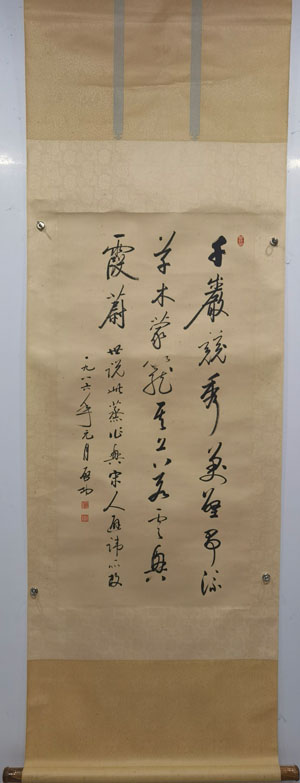 千巖競秀萬壑爭流
草木蒙籠其上若雲興
霞蔚
世说此蒸作興宋人避諱所改
一九八六年元月启功